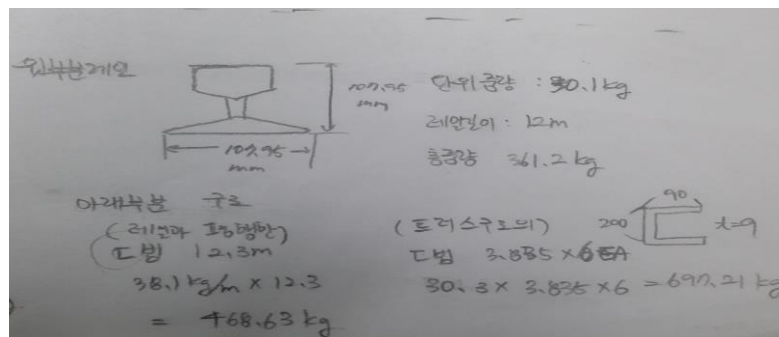 윗부분레일
107.95
mm
107.95
mm
단위중량 : 30.1kg
레일길이 : 12m
총중량 361.2kg
아래부분 구조
(레일과 평행한)
ㄷ빔 12.3m
38.1kg/m × 12.3
= 468.63kg
(트러스구조의)
ㄷ빔 3.835×6EA
30.3 × 3.835 × 6 = 697.21kg
90
200
t=9